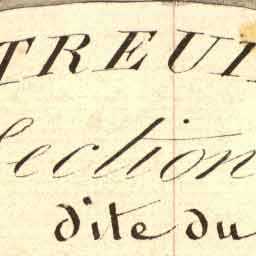 TREUI
Section
dite du